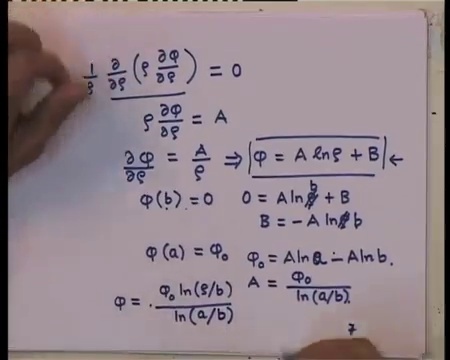 1/ρ ∂/∂ρ (ρ ∂φ/∂ρ) = 0
ρ ∂φ/∂ρ = A
∂φ/∂ρ = A/ρ ⇒ φ = A lnρ + B ←
φ(b) = 0 0 = A ln b + B
B = -A ln b
φ(a) = φ₀ φ₀ = A ln a - A ln b.
φ = φ₀ ln(ρ/b) / ln(a/b) A = φ₀ / ln(a/b).
7